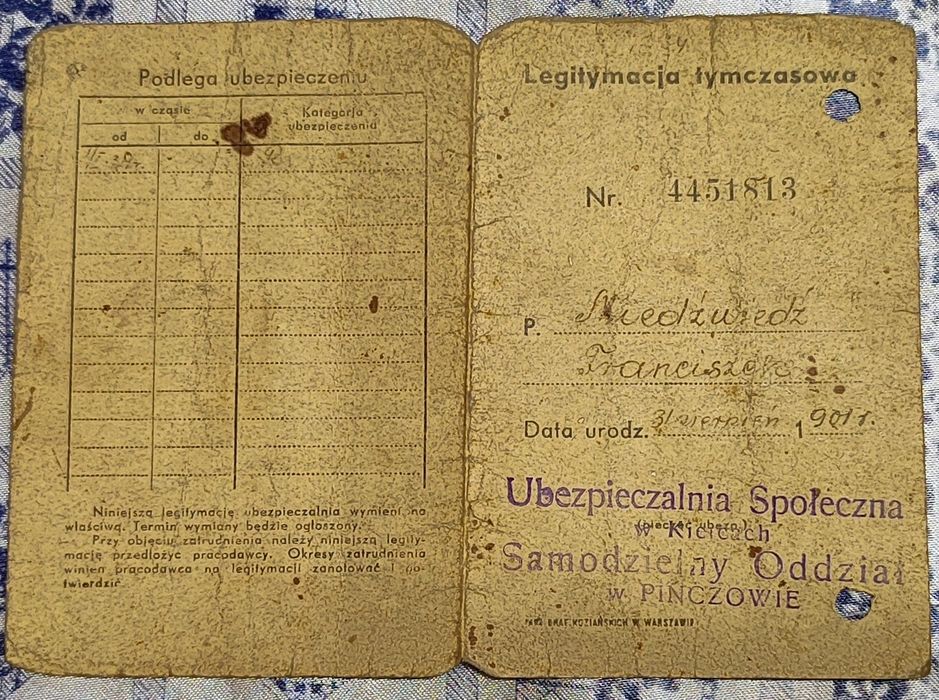 Podlega ubezpieczeniu
w czasie
Kategorja
ubezpieczenia
od
do
Niniejszą legitymację ubezpieczalnia wymieni na
właściwą. Termin wymiany będzie ogłoszony.
Przy objęciu zatrudnienia należy niniejszą legity-
mację przedłożyć pracodawcy. Okresy zatrudnienia
winien pracodawca na legitymacji zanotować i po-
twierdzić
Legitymacja tymczasowa
Nr. 4451813
P. Niedźwiedź
Franciszek
Data urodz. sierpień 1901 r.
Ubezpieczalnia Społeczna
(pieczęć ubezp.)
w Kielcach
Samodzielny Oddział
w PIŃCZOWIE
GRAF. KOZIAŃSKICH W WARSZAWIE